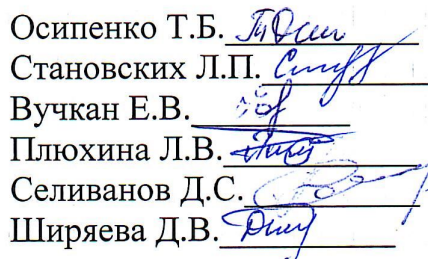 Осипенко Т.Б.
Становских Л.П.
Вучкан Е.В.
Плюхина Л.В.
Селиванов Д.С.
Ширяева Д.В.